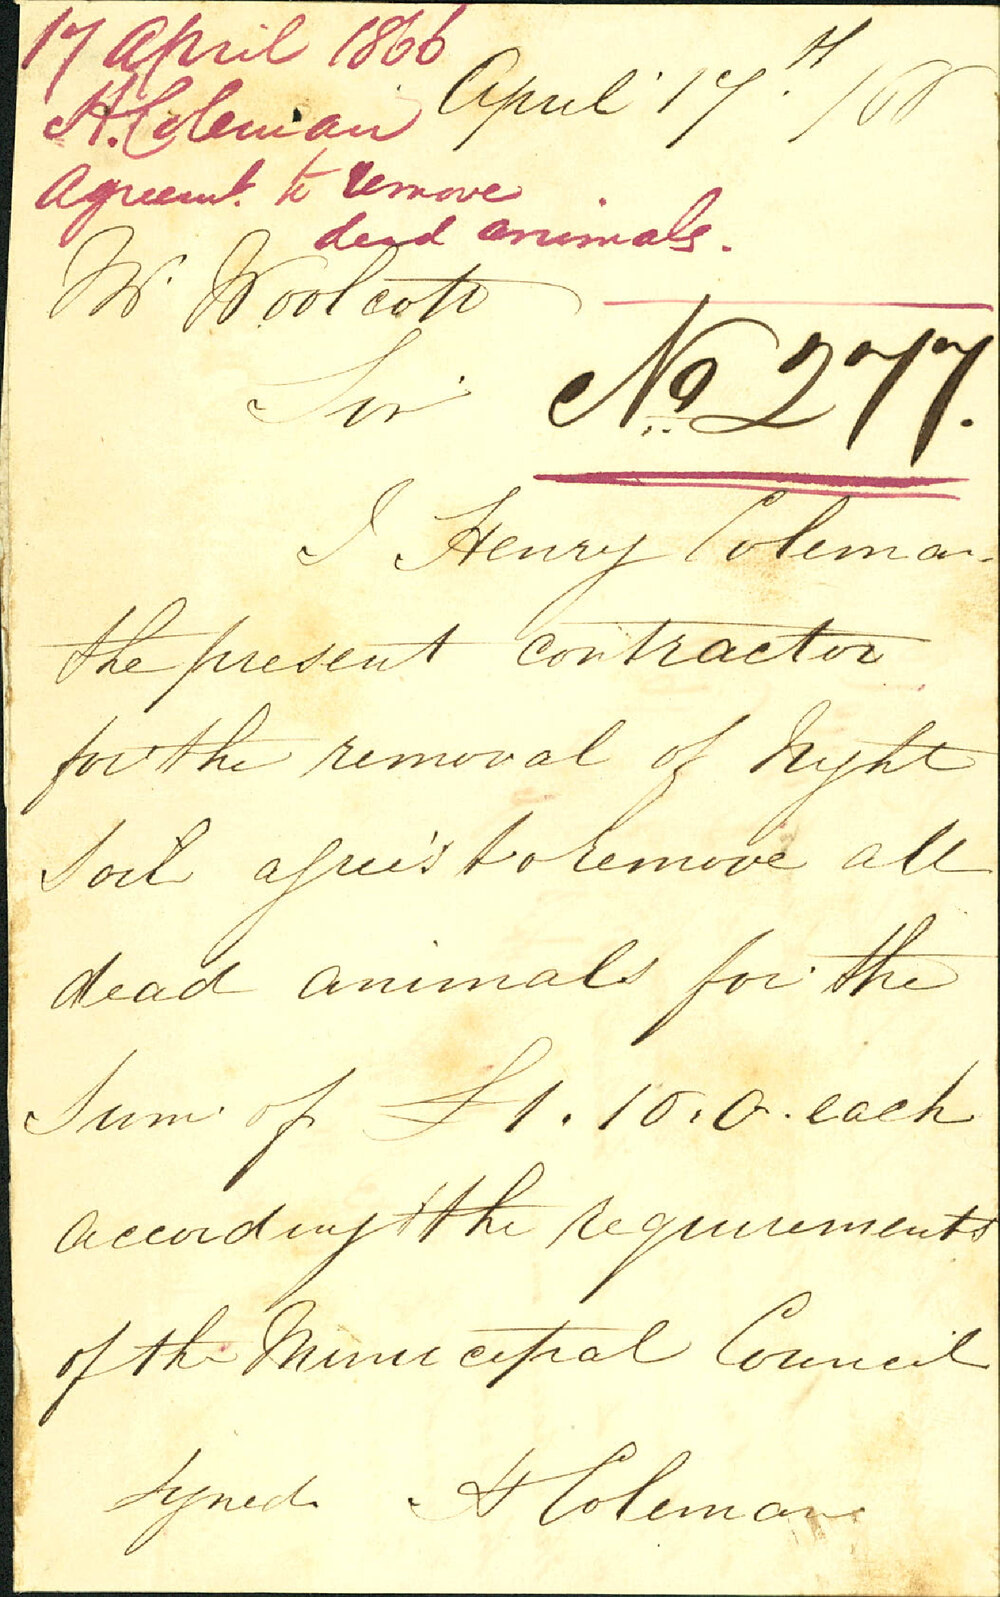 17 April 1866
H. Coleman
Agreemt. to remove
dead animals.
April 17th /66
Mr Woolcott
Sir
No 277.
I Henry Coleman
the present contractor
for the removal of Nyht
Soil agree's to remove all
dead animals for the
Sum of £1.10.0. each
according t the requirements
of the Municipal Council
syned H Coleman